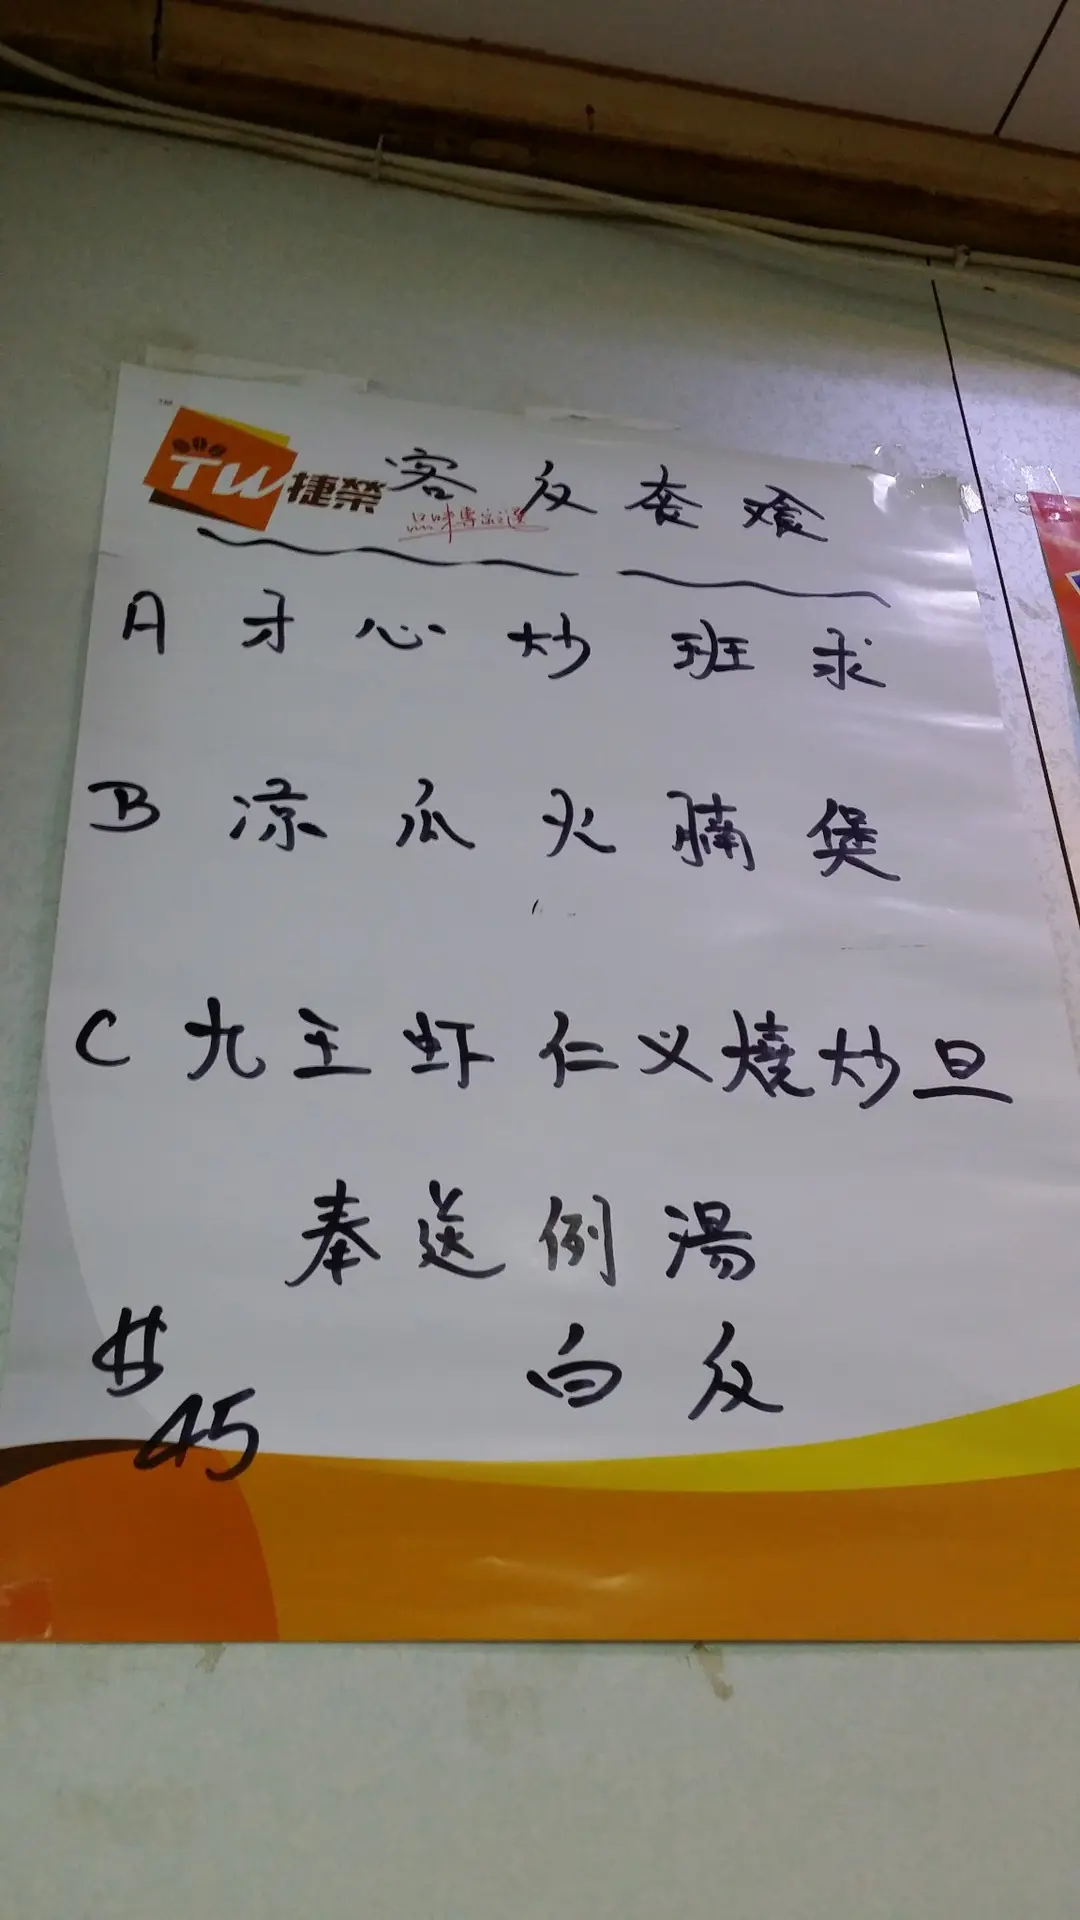 TW捷榮 客反套餐
品味專家選
A 才心炒班求
B 凉瓜火腩煲
C 九王虾仁义燒炒旦
奉送例湯
白反
$45